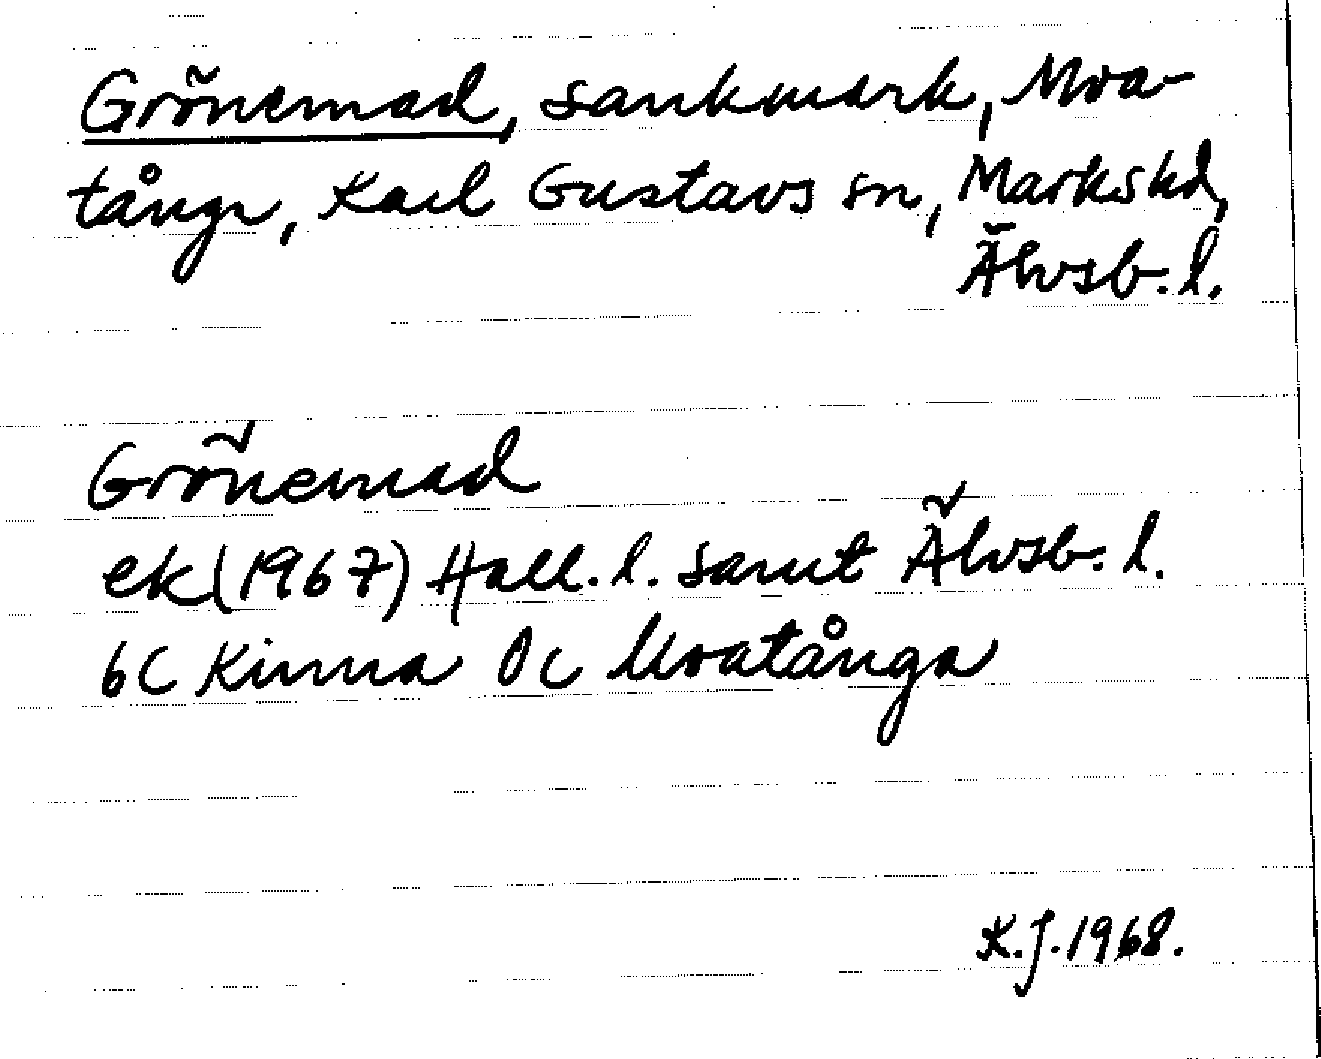 Grönemad, sankmark, Moa-
tånga, Karl Gustavs sn, Marks hd,
Älvsb. l.
Grönemad
ek (1967) Hall. l. samt Älvsb. l.
6C Kinna 0c Moatånga
K.J. 1968.